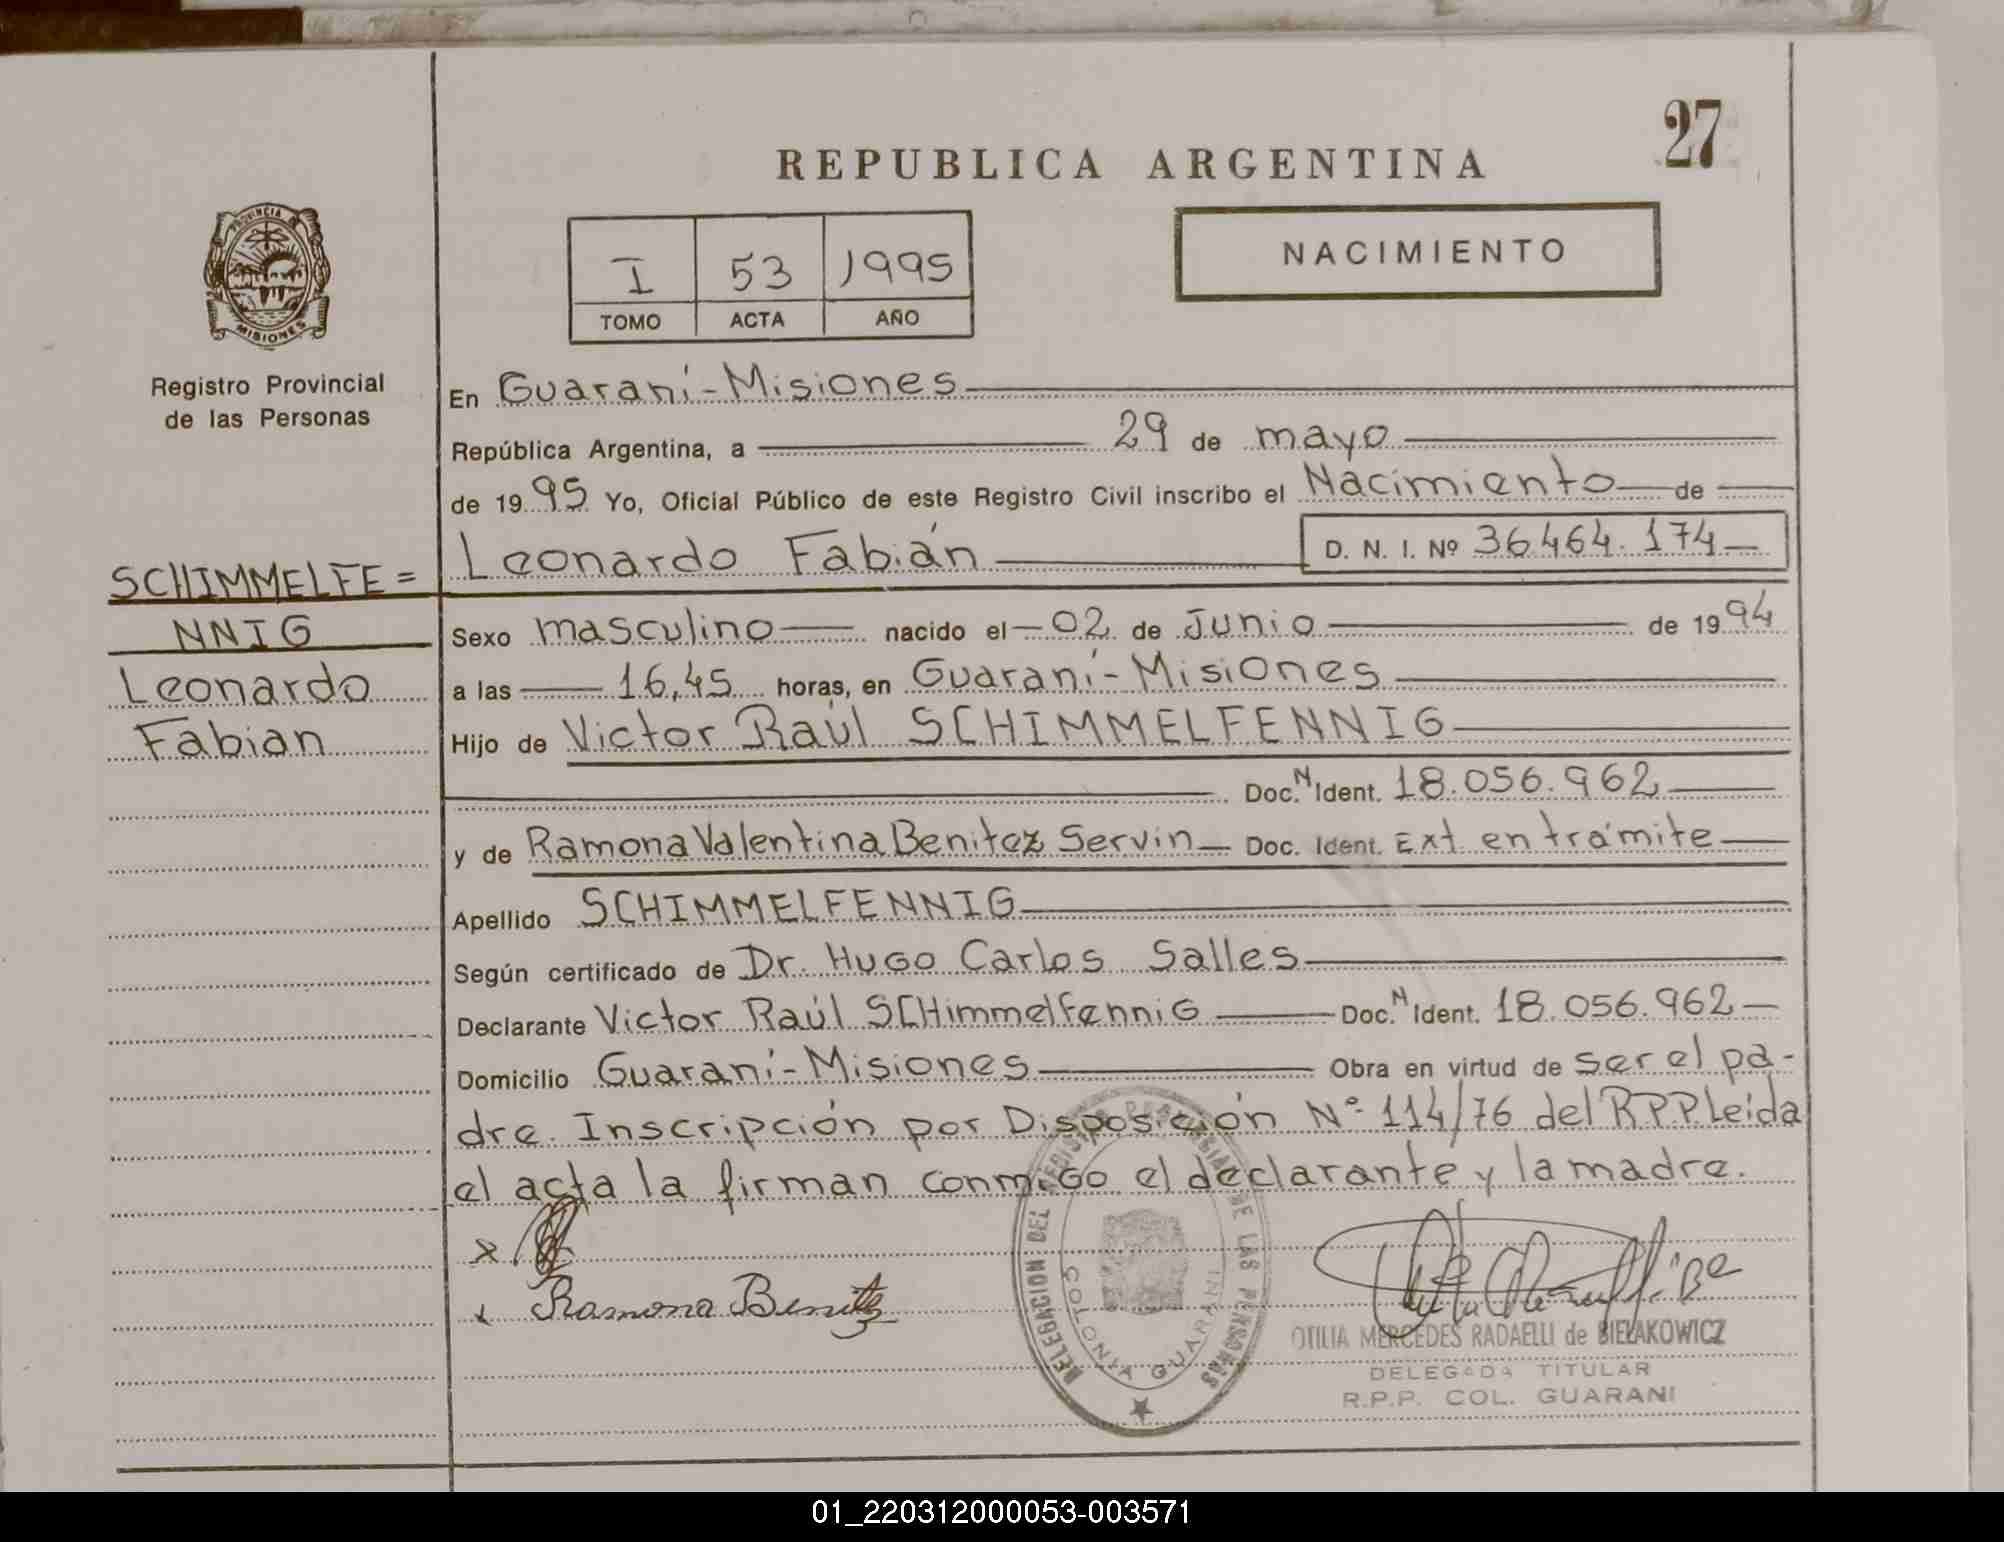 27
REPUBLICA ARGENTINA
PROVINCIA DE
MISIONES
I 53 1995
TOMO ACTA AÑO
NACIMIENTO
Registro Provincial
de las Personas
SCHIMMELFE=
NNIG
Leonardo
Fabian
En Guaraní-Misiones
República Argentina, a 29 de mayo
de 1995 Yo, Oficial Público de este Registro Civil inscribo el Nacimiento de
Leonardo Fabián D. N. I. Nº 36.464.174
Sexo masculino nacido el 02 de Junio de 1994
a las 16,45 horas, en Guaraní-Misiones
Hijo de Victor Raúl SCHIMMELFENNIG
Doc. N Ident. 18.056.962
y de Ramona Valentina Benitez Servin Doc. Ident. Ext. en trámite
Apellido SCHIMMELFENNIG
Según certificado de Dr. Hugo Carlos Salles
Declarante Victor Raúl SCHimmelfenniG Doc. N Ident. 18.056.962
Domicilio Guaraní-Misiones Obra en virtud de ser el pa-
dre. Inscripción por Disposición Nº 114/76 del RPP Leída
el acta la firman conmigo el declarante y la madre.
x
x Ramona Benitez
DELEGACION DEL REGISTRO PROVINCIAL DE LAS PERSONAS
COLONIA GUARANI
OTILIA MERCEDES RADAELLI de BIELAKOWICZ
DELEGADA TITULAR
R.P.P. COL. GUARANI
01_220312000053-003571